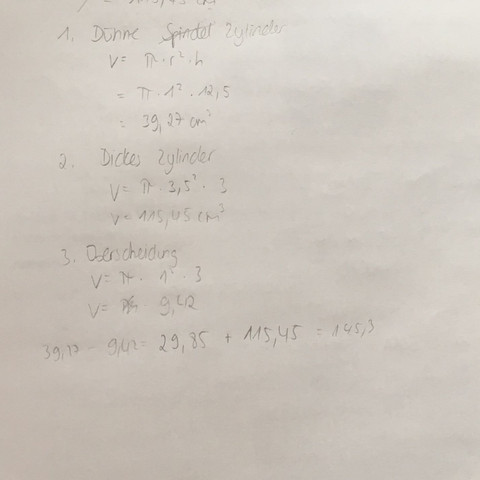 = 115,45 cm
1. Dünne Spindel Zylinder
V= π·r²·h
= π·1²·12,5
= 39,27 cm³
2. Dickes Zylinder
V= π·3,5²·3
V= 115,45 cm³
3. Oberscheidung
V= π·1²·3
V= 9,42
39,27 - 9,42= 29,85 + 115,45 = 145,3